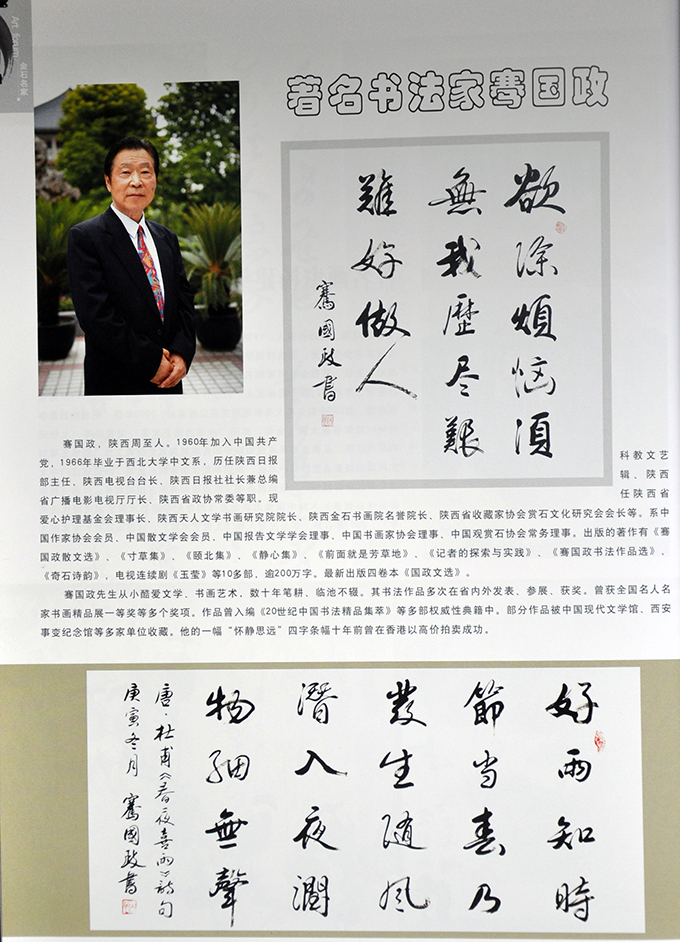 Art forum 金石名家
著名书法家骞国政
欲除煩恼須
無我歷尽艱
難好做人
騫國政書
骞国政，陕西周至人。1960年加入中国共产
党，1966年毕业于西北大学中文系，历任陕西日报科教文艺
部主任、陕西电视台台长、陕西日报社社长兼总编辑、陕西
省广播电影电视厅厅长、陕西省政协常委等职。现任陕西省
爱心护理基金会理事长、陕西天人文学书画研究院院长、陕西金石书画院名誉院长、陕西省收藏家协会赏石文化研究会会长等。系中
国作家协会会员、中国散文学会会员、中国报告文学学会理事、中国书画家协会理事、中国观赏石协会常务理事。出版的著作有《骞
国政散文选》、《寸草集》、《颐北集》、《静心集》、《前面就是芳草地》、《记者的探索与实践》、《骞国政书法作品选》、
《奇石诗韵》，电视连续剧《玉莹》等10多部，逾200万字。最新出版四卷本《国政文选》。
骞国政先生从小酷爱文学、书画艺术，数十年笔耕、临池不辍。其书法作品多次在省内外发表、参展、获奖。曾获全国名人名
家书画精品展一等奖等多个奖项。作品曾入编《20世纪中国书法精品集萃》等多部权威性典籍中。部分作品被中国现代文学馆、西安
事变纪念馆等多家单位收藏。他的一幅“怀静思远”四字条幅十年前曾在香港以高价拍卖成功。
好雨知時
節当春乃
發生随风
潛入夜潤
物細無聲
唐·杜甫《春夜喜雨》詩句
庚寅冬月 騫國政書